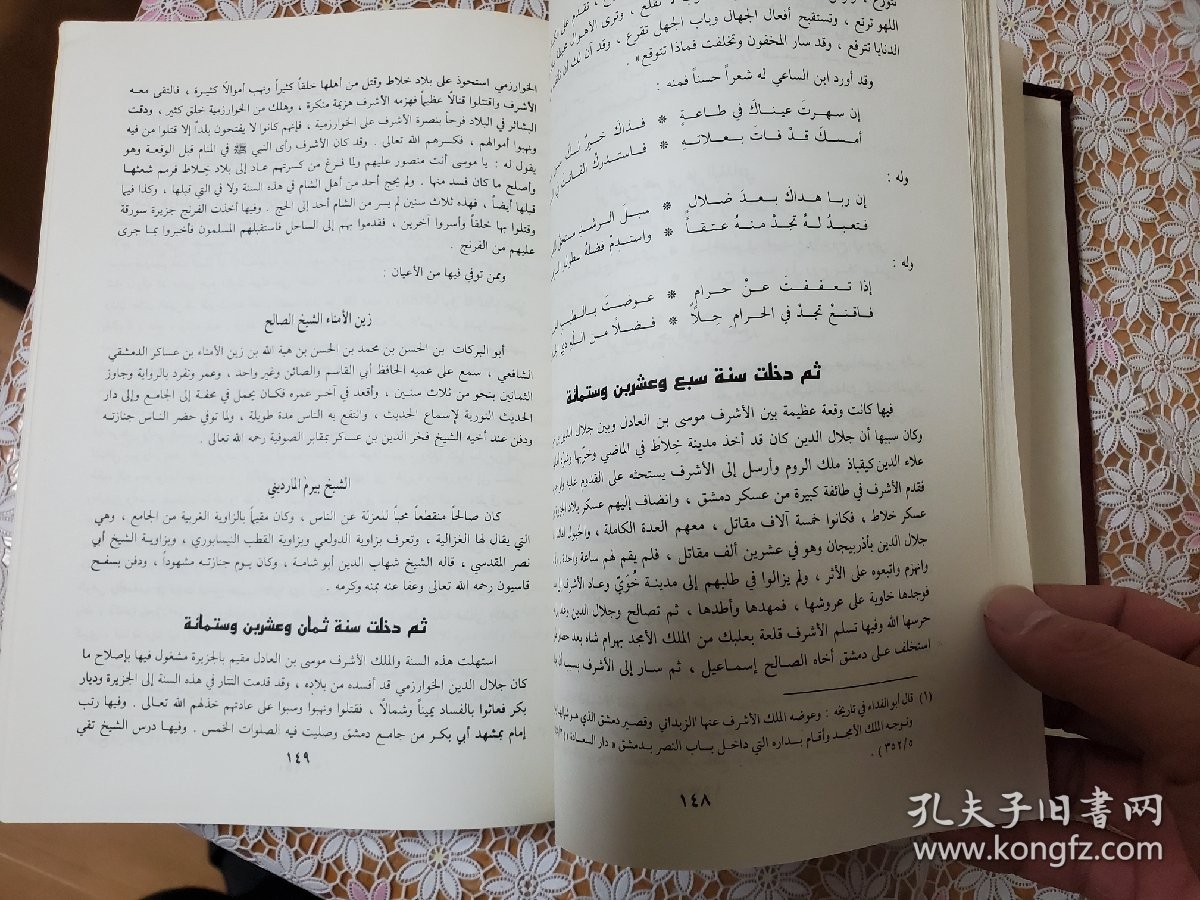 اللهو ترتع ، وتستقبح أفعال الجهال وباب الجهل تقرع ، وقد آن لك أن
الدنايا تترفع ، وقد سار المخفون وتخلفت فماذا تتوقع » .
وقد أورد ابن الساعي له شعراً حسناً فمنه :
إن سهرت عيناك في طاعةٍ * فذاك خيرٌ لك
أمسك قد فات بعلاته * فاستدرك الفائت
وله :
إن ربا هداك بعد ضلال * سبل الرشد مستحق
فتعبد له تجد منه عتقاً * واستدم فضله
وله :
إذا تعففت عن حرام * عوضت بالطيب
فاقنع تجد في الحرام حلاً * فضلاً من الله ذي
ثم دخلت سنة سبع وعشرين وستمائة
فيها كانت وقعة عظيمة بين الأشرف موسى بن العادل وبين جلال الدين
وكان سببها أن جلال الدين كان قد أخذ مدينة خِلاط في الماضي وخرّبها
علاء الدين كيقباذ ملك الروم وأرسل إلى الأشرف يستحثه على القدوم عليه
فقدم الأشرف في طائفة كبيرة من عسكر دمشق ، وانضاف إليهم عسكر بلاد
عسكر خلاط ، فكانوا خمسة آلاف مقاتل ، معهم العدة الكاملة ، والخيول
جلال الدين بأذربيجان وهو في عشرين ألف مقاتل ، فلم يقم لهم ساعة واحدة
وانهزم واتبعوه على الأثر ، ولم يزالوا في طلبهم إلى مدينة خُوَيّ وعاد الأشرف
فوجدها خاوية على عروشها ، فمهدها وأطدها ، ثم تصالح وجلال الدين وعاد
حرسها الله وفيها تسلم الأشرف قلعة بعلبك من الملك الأمجد بهرام شاه بعد حصار
استخلف على دمشق أخاه الصالح إسماعيل ، ثم سار إلى الأشرف بسبب أن
(١) قال أبو الفداء في تاريخه : وعوضه الملك الأشرف عنها الزبداني وقصير دمشق الذي هو
وتوجه الملك الأمجد وأقام بداره التي داخل باب النصر بدمشق « دار السعادة
٣٥٢/٥ ) .
١٤٨
الخوارزمي استحوذ على بلاد خلاط وقتل من أهلها خلقاً كثيراً ونهب أموالاً كثيرة ، فالتقى معه
الأشرف واقتتلوا قتالاً عظيماً فهزمه الأشرف هزيمة منكرة ، وهلك من الخوارزمية خلق كثير ، ودقت
البشائر في البلاد فرحاً بنصرة الأشرف على الخوارزمية ، فإنهم كانوا لا يفتحون بلداً إلا قتلوا من فيه
ونهبوا أموالهم ، فكسرهم الله تعالى . وقد كان الأشرف رأى النبي ﷺ في المنام قبل الوقعة وهو
يقول له : يا موسى أنت منصور عليهم ولما فرغ من كسرتهم عاد إلى بلاد خلاط فرمم شعثها
وأصلح ما كان فسد منها . ولم يحج أحد من أهل الشام في هذه السنة ولا في التي قبلها ، وكذا فيما
قبلها أيضاً ، فهذه ثلاث سنين لم يسر من الشام أحد إلى الحج . وفيها أخذت الفرنج جزيرة سورقة
وقتلوا بها خلقاً وأسروا آخرين ، فقدموا بهم إلى الساحل فاستقبلهم المسلمون فأخبروا بما جرى
عليهم من الفرنج .
وممن توفي فيها من الأعيان :
زين الأمناء الشيخ الصالح
أبو البركات بن الحسن بن محمد بن الحسن بن هبة الله بن زين الأمناء بن عساكر الدمشقي
الشافعي ، سمع على عميه الحافظ أبي القاسم والصائن وغير واحد ، وعمر وتفرد بالرواية وجاوز
الثمانين بنحو من ثلاث سنين ، وأقعد في آخر عمره فكان يحمل في محفة إلى الجامع وإلى دار
الحديث النورية لإسماع الحديث ، وانتفع به الناس مدة طويلة ، ولما توفي حضر الناس جنازته
ودفن عند أخيه الشيخ فخر الدين بن عساكر بمقابر الصوفية رحمه الله تعالى .
الشيخ بيرم المارديني
كان صالحاً منقطعاً محباً للعزلة عن الناس ، وكان مقيماً بالزاوية الغربية من الجامع ، وهي
التي يقال لها الغزالية ، وتعرف بزاوية الدولعي وبزاوية القطب النيسابوري ، وبزاوية الشيخ أبي
نصر المقدسي ، قاله الشيخ شهاب الدين أبو شامة ، وكان يوم جنازته مشهوداً ، ودفن بسفح
قاسيون رحمه الله تعالى وعفا عنه بمنه وكرمه .
ثم دخلت سنة ثمان وعشرين وستمائة
استهلت هذه السنة والملك الأشرف موسى بن العادل مقيم بالجزيرة مشغول فيها بإصلاح ما
كان جلال الدين الخوارزمي قد أفسده من بلاده ، وقد قدمت التتار في هذه السنة إلى الجزيرة وديار
بكر فعاثوا بالفساد يميناً وشمالاً ، فقتلوا ونهبوا وسبوا على عادتهم خذلهم الله تعالى . وفيها رتب
إمام بمشهد أبي بكر من جامع دمشق وصليت فيه الصلوات الخمس . وفيها درس الشيخ تقي
١٤٩
孔夫子旧书网
www.kongfz.com